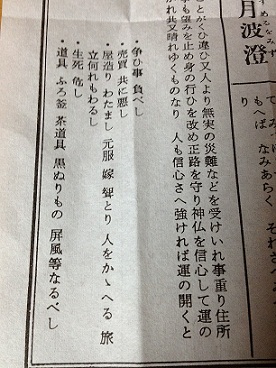 月波澄
もへば なみあらく
り
ことがくひ違ひ又人より無実の災難などを受けいれ事重り住所
事も望みを止め身の行ひを改め正路を守り神仏を信心して運の
がれ共又晴れゆくものなり 人も信心さへ強ければ運の開くと
・争ひ事 負べし
・売買 共に悪し
・屋造り わたまし 元服 嫁聟とり 人をかゝへる 旅
立何れもわるし
・生死 危し
・道具 ふろ釜 茶道具 黒ぬりもの 屏風等なるべし